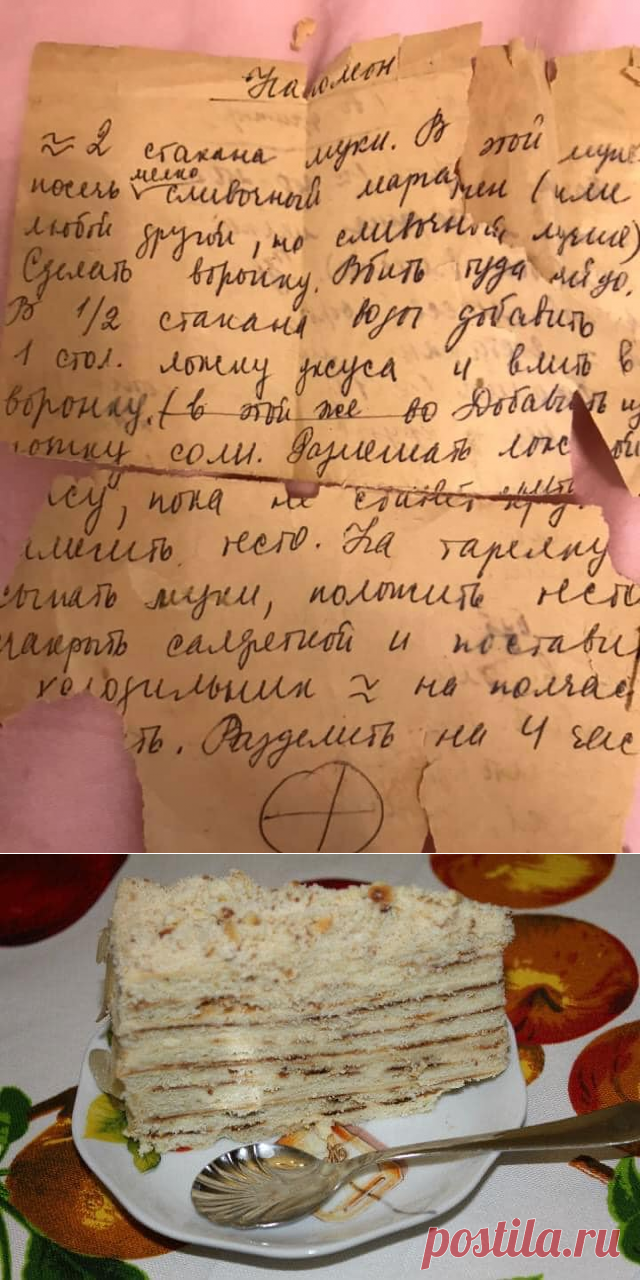 Наполеон
≈ 2 стакана муки. В этой муке
мелко
посечь сливочный маргарин (или
любой другой, но сливочный лучше)
Сделать воронку. Вбить туда яйцо.
В 1/2 стакана воды добавить
1 стол. ложку уксуса и влить в
воронку. (в этой же во Добавить
ложку соли. Размешать
пока не станет
месить тесто. На тарелку
сыпать муки, положить тесто
накрыть салфеткой и постави
холодильник ≈ на полчаса
ть. Разделить на 4 час
postila.ru